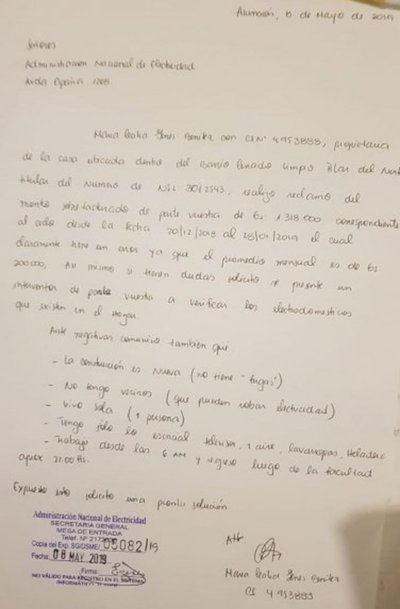 Asunción, 8 de Mayo de 2019
Señores
Administracion Nacional de Electricidad
Avda España 1268
Maria con CI N° 4953888, propietaria
de la casa ubicada dentro del Barrio Cerrado Limpio Pilar del Norte
titular del Numero de NIS 3012543, realizo reclamo del
monto sobrefacturado de parte vuestra de Gs 1.318.000 correspondiente
al desde la fecha 20/12/2018 al 28/01/2019 el cual
claramente tiene un error ya que el promedio mensual es de Gs
200.000, Asi mismo si tienen dudas solicito se presente un
interventor de parte vuestra a verificar los electrodomesticos
que existen en el Hogar
Ante negativas comunico también que
- La construcción es Nueva (no tiene "fugas")
- No tengo vecinos (que pueden robar electricidad)
- Vivo Sola (1 persona)
- Tengo solo lo esencial televisor, 1 aire, lavarropas, Heladera
- Trabajo desde las 6 AM y regreso luego de la facultad
aprox 22:00 Hs.
Expuesto esto solicito una pronta solución
Administración Nacional de Electricidad
SECRETARIA GENERAL
MESA DE ENTRADA
Telef. Nº 217
Copia del Exp. SG/DSME/ 05082/19
Fecha: 08 MAY 2019
Firma:
NO VÁLIDO PARA REGISTRO EN EL SISTEMA
INFORMÁTICO
Att
Maria
CI 4953888